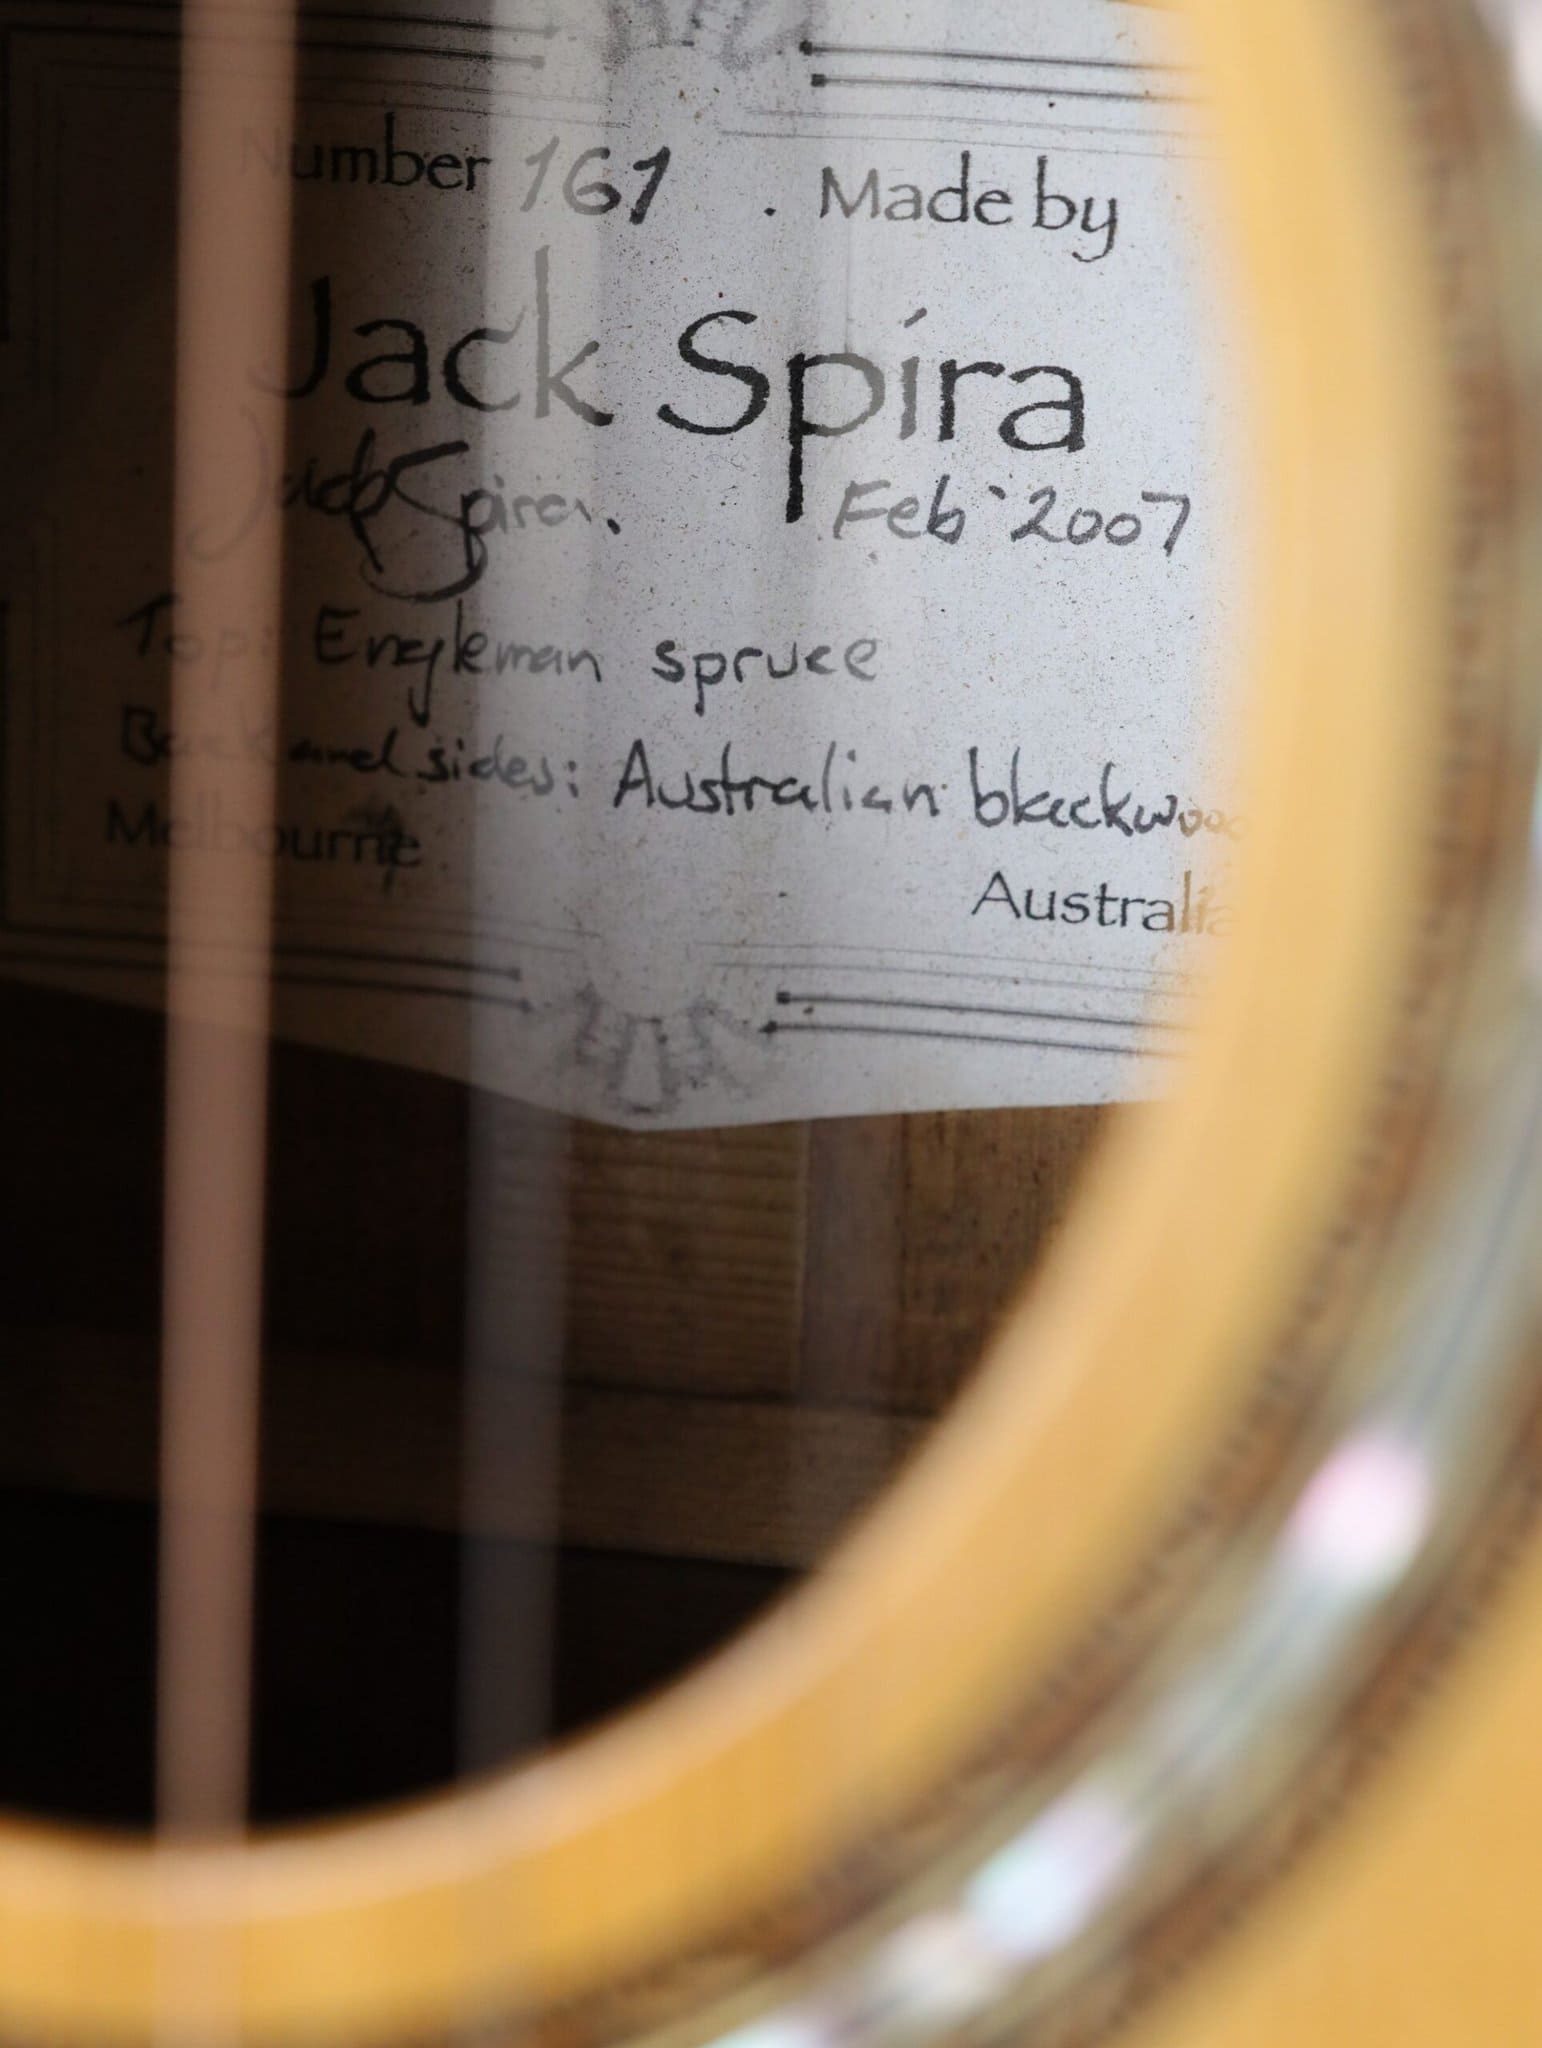 Number 161 . Made by
Jack Spira
Jack Spira. Feb 2007
Top: Engleman spruce
Back and sides: Australian blackwood
Melbourne
Australia